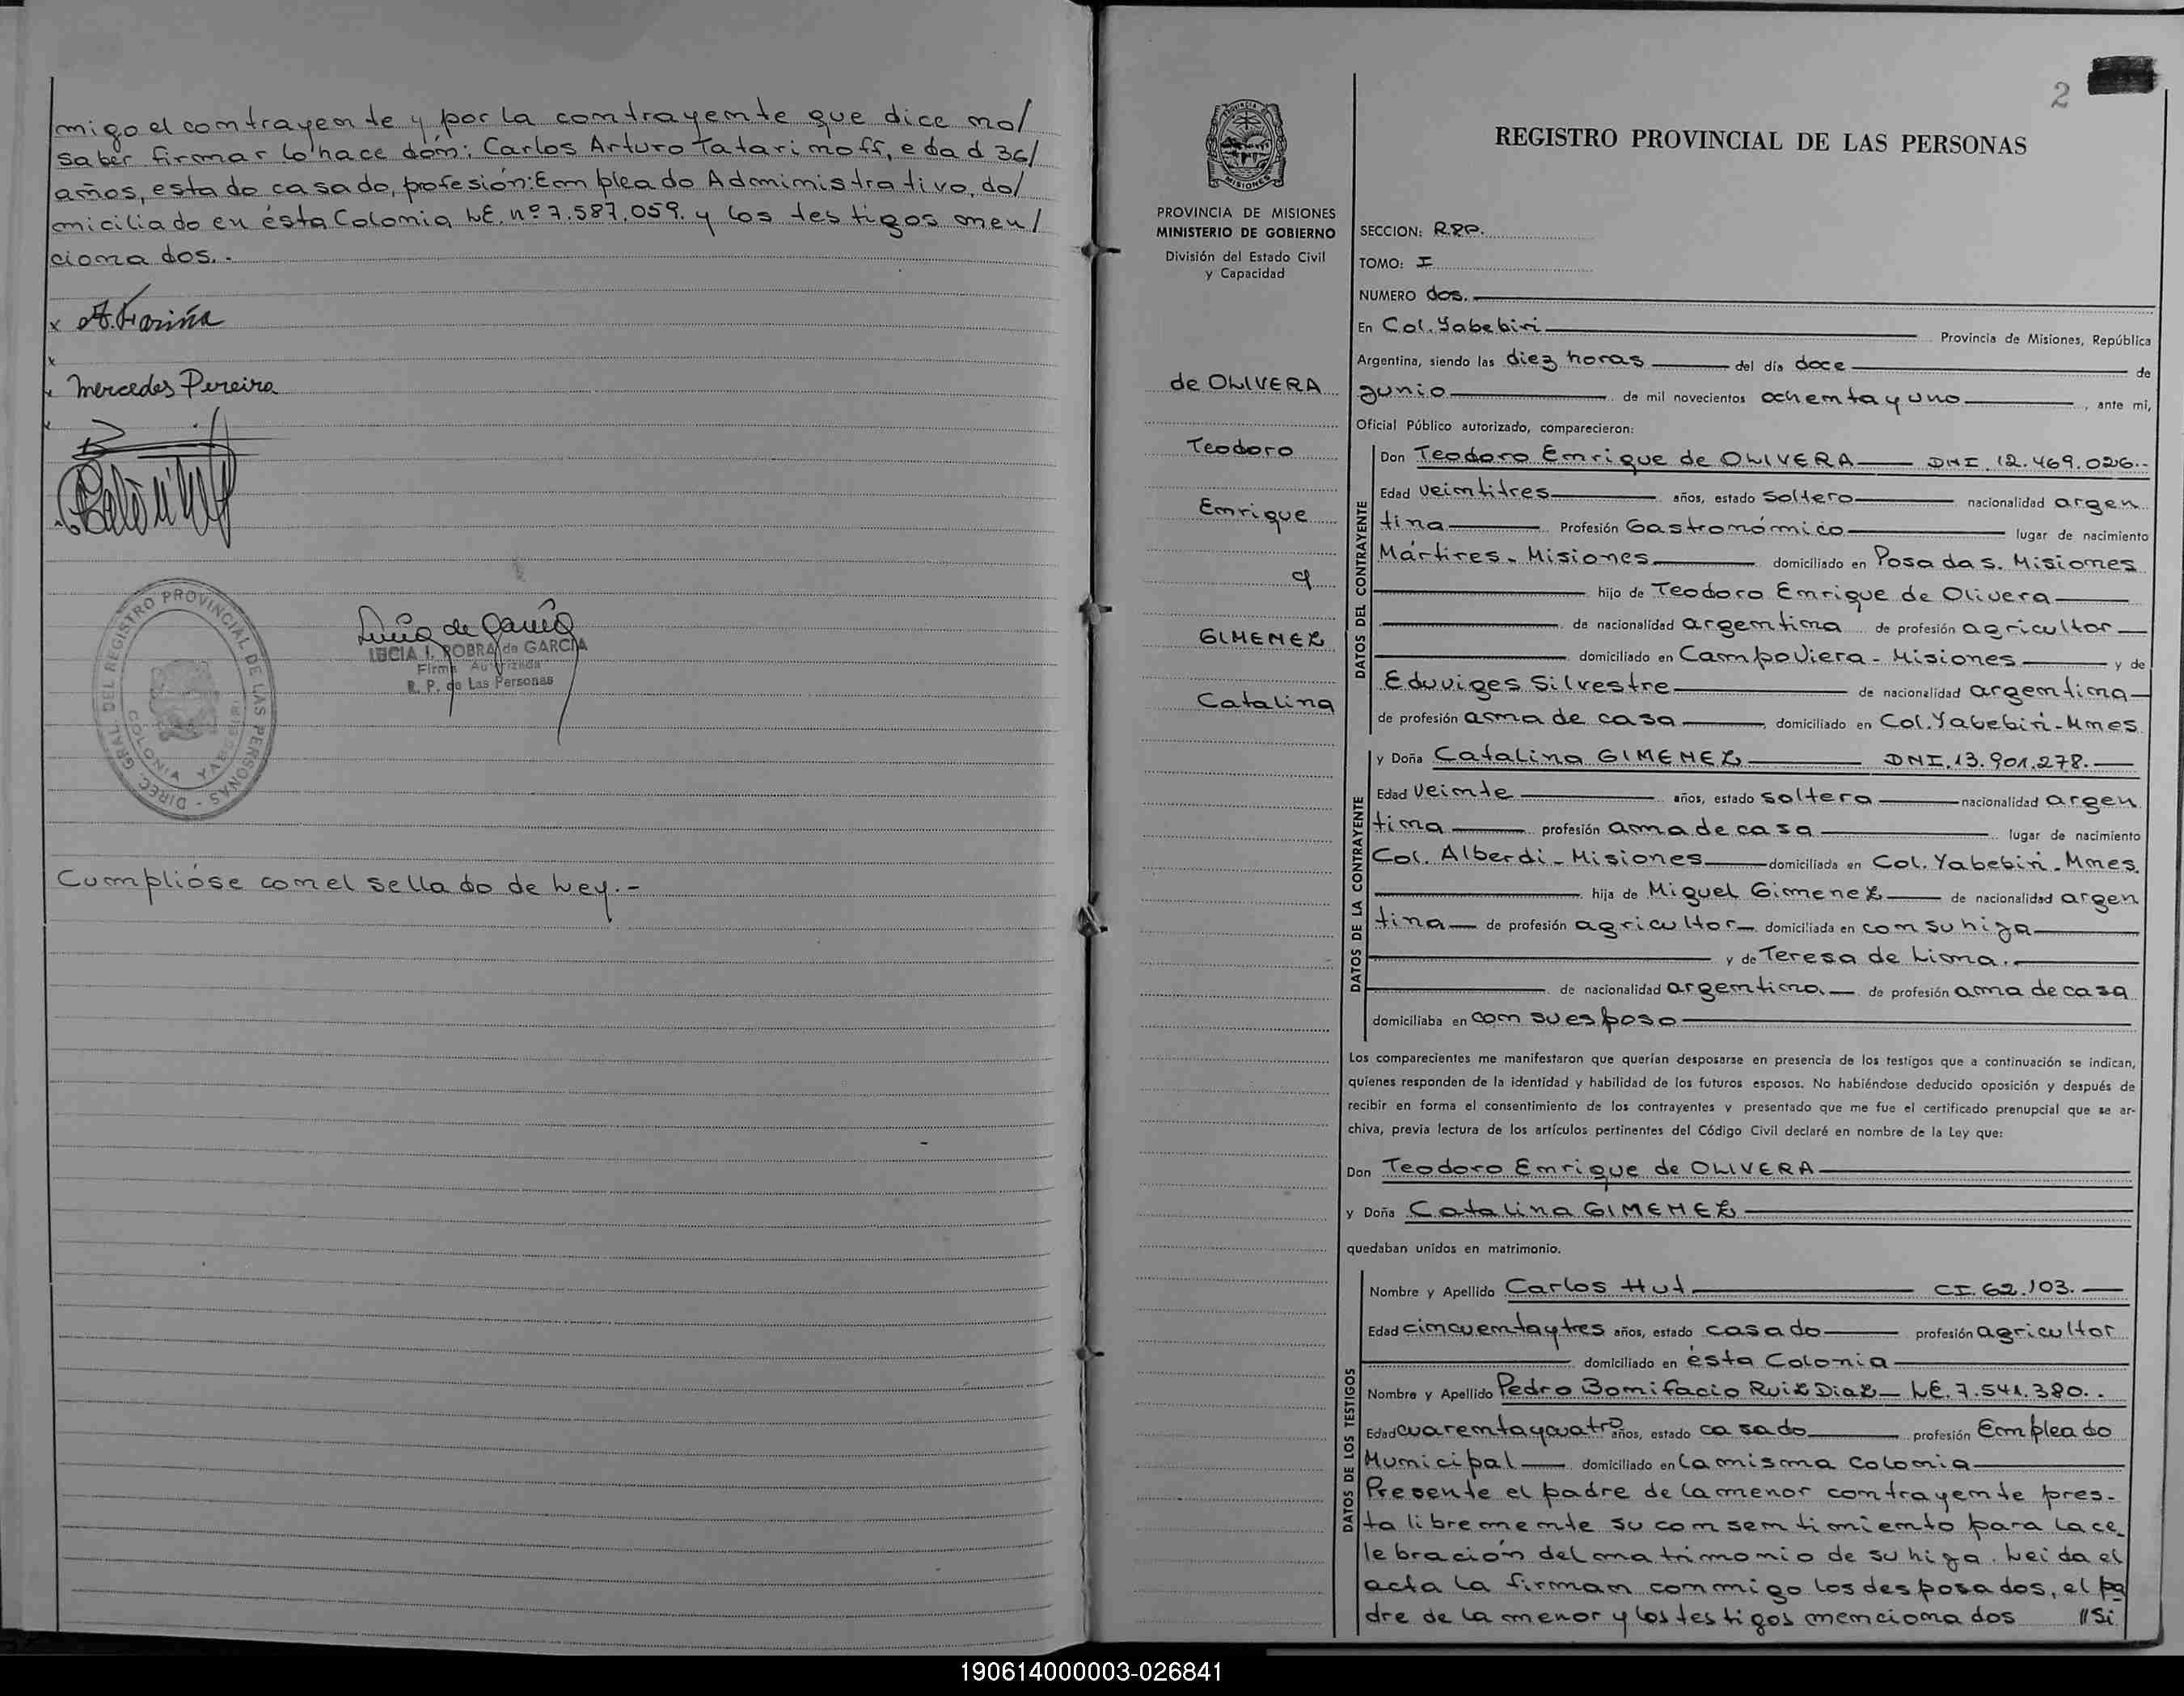 migo el contrayente y por la contrayente que dice no/
saber firmar lo hace dón: Carlos Arturo Tatarinoff, edad 36/
años, estado casado, profesión: Empleado Administrativo, do/
miciliado en ésta Colonia LE. nº 7.587.059. y los testigos men/
cionados..
x A. Fariña
x
x Mercedes Pereira
DIREC. GRAL. DEL REGISTRO PROVINCIAL DE LAS PERSONAS -
COLONIA YABEBIRI
LUCIA I. POBRA de GARCIA
Firma Autorizada
R. P. de Las Personas
Cumplióse con el sellado de Ley.-
2
PROVINCIA DE MISIONES
MINISTERIO DE GOBIERNO
División del Estado Civil
y Capacidad
de OLIVERA
Teodoro
Enrique
y
GIMENEZ
Catalina
REGISTRO PROVINCIAL DE LAS PERSONAS
SECCION: R.P.P.
TOMO: I
NUMERO dos.
En Col. Yabebiri Provincia de Misiones, República
Argentina, siendo las diez horas del día doce de
junio de mil novecientos ochenta y uno, ante mi,
Oficial Público autorizado, comparecieron:
DATOS DEL CONTRAYENTE
Don Teodoro Enrique de OLIVERA DNI. 12.469.026.-
Edad veintitres años, estado soltero nacionalidad argen
tina Profesión Gastronómico lugar de nacimiento
Mártires - Misiones domiciliado en Posadas. Misiones
hijo de Teodoro Enrique de Olivera
de nacionalidad argentina de profesión agricultor
domiciliado en Campo Viera - Misiones y de
Eduviges Silvestre de nacionalidad argentina
de profesión ama de casa, domiciliado en Col. Yabebiri - Mnes
DATOS DE LA CONTRAYENTE
y Doña Catalina GIMENEZ DNI. 13.901.278.
Edad veinte años, estado soltera nacionalidad argen
tina profesión ama de casa lugar de nacimiento
Col. Alberdi - Misiones domiciliada en Col. Yabebiri. Mnes.
hija de Miguel Gimenez de nacionalidad argen
tina de profesión agricultor domiciliada en con su hija
y de Teresa de Lima.
de nacionalidad argentina. de profesión ama de casa
domiciliaba en con su esposo
Los comparecientes me manifestaron que querían desposarse en presencia de los testigos que a continuación se indican,
quienes responden de la identidad y habilidad de los futuros esposos. No habiéndose deducido oposición y después de
recibir en forma el consentimiento de los contrayentes y presentado que me fue el certificado prenupcial que se ar-
chiva, previa lectura de los artículos pertinentes del Código Civil declaré en nombre de la Ley que:
Don Teodoro Enrique de OLIVERA
y Doña Catalina GIMENEZ
quedaban unidos en matrimonio.
DATOS DE LOS TESTIGOS
Nombre y Apellido Carlos Hut CI. 62.103.
Edad cincuenta y tres años, estado casado profesión agricultor
domiciliado en ésta Colonia
Nombre y Apellido Pedro Bonifacio Ruiz Diaz LE. 7.541.380..
Edad cuarenta y cuatro años, estado casado profesión Empleado
Municipal domiciliado en la misma Colonia
Presente el padre de la menor contrayente pres-
ta libremente su consentimiento para la ce-
lebración del matrimonio de su hija. Leida el
acta la firman conmigo los desposados, el pa
dre de la menor y los testigos mencionados //Si
190614000003-026841